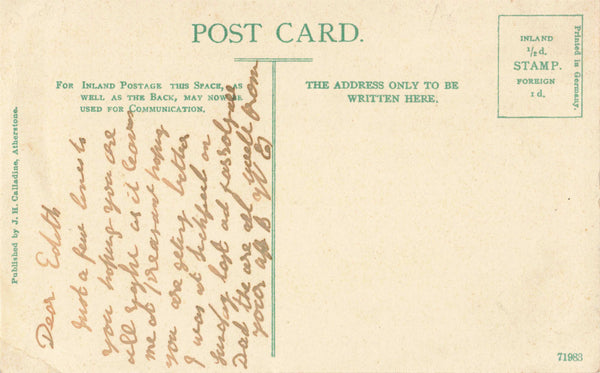 POST CARD.
FOR INLAND POSTAGE THIS SPACE, AS
WELL AS THE BACK, MAY NOW BE
USED FOR COMMUNICATION.
THE ADDRESS ONLY TO BE
WRITTEN HERE.
INLAND
½d.
STAMP.
FOREIGN
1d.
Printed in Germany.
Published by J. H. Calladine, Atherstone.
Dear Edith
Just a few lines to
you hoping you are
all right as it leaves
me at present hoping
you are getting better
I was at
last
Dad the are all well from
your
71983